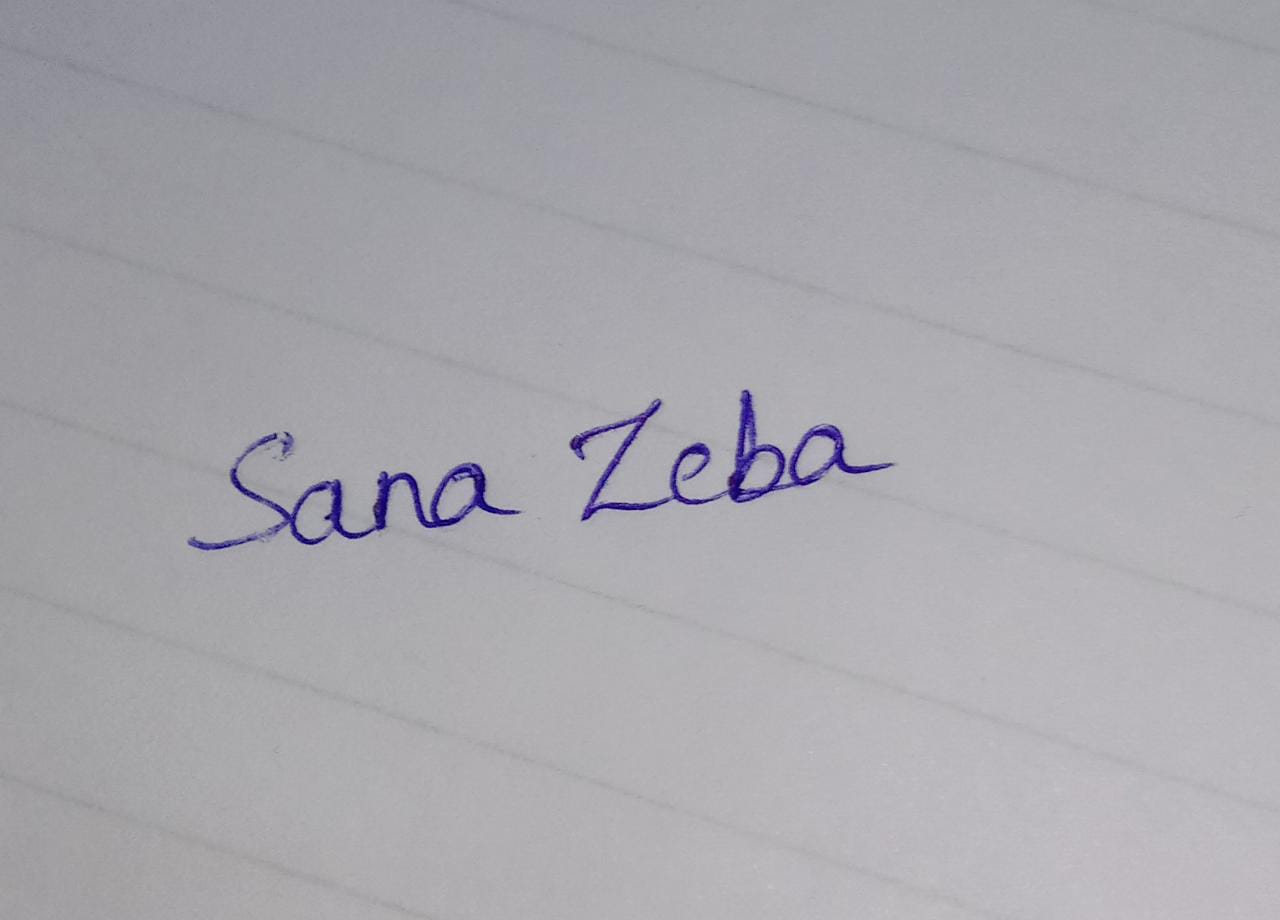 Sana Zeba